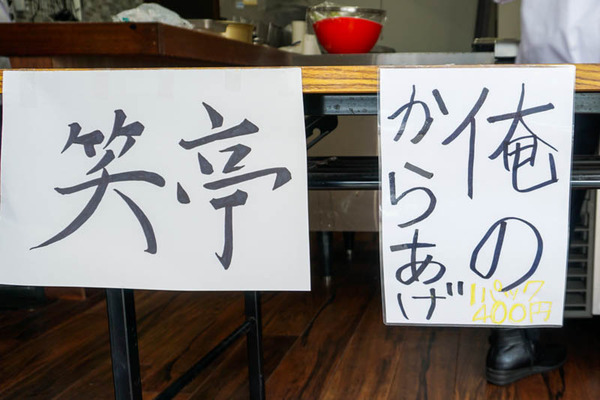 笑亭
俺の
からあげ
1パック
400円